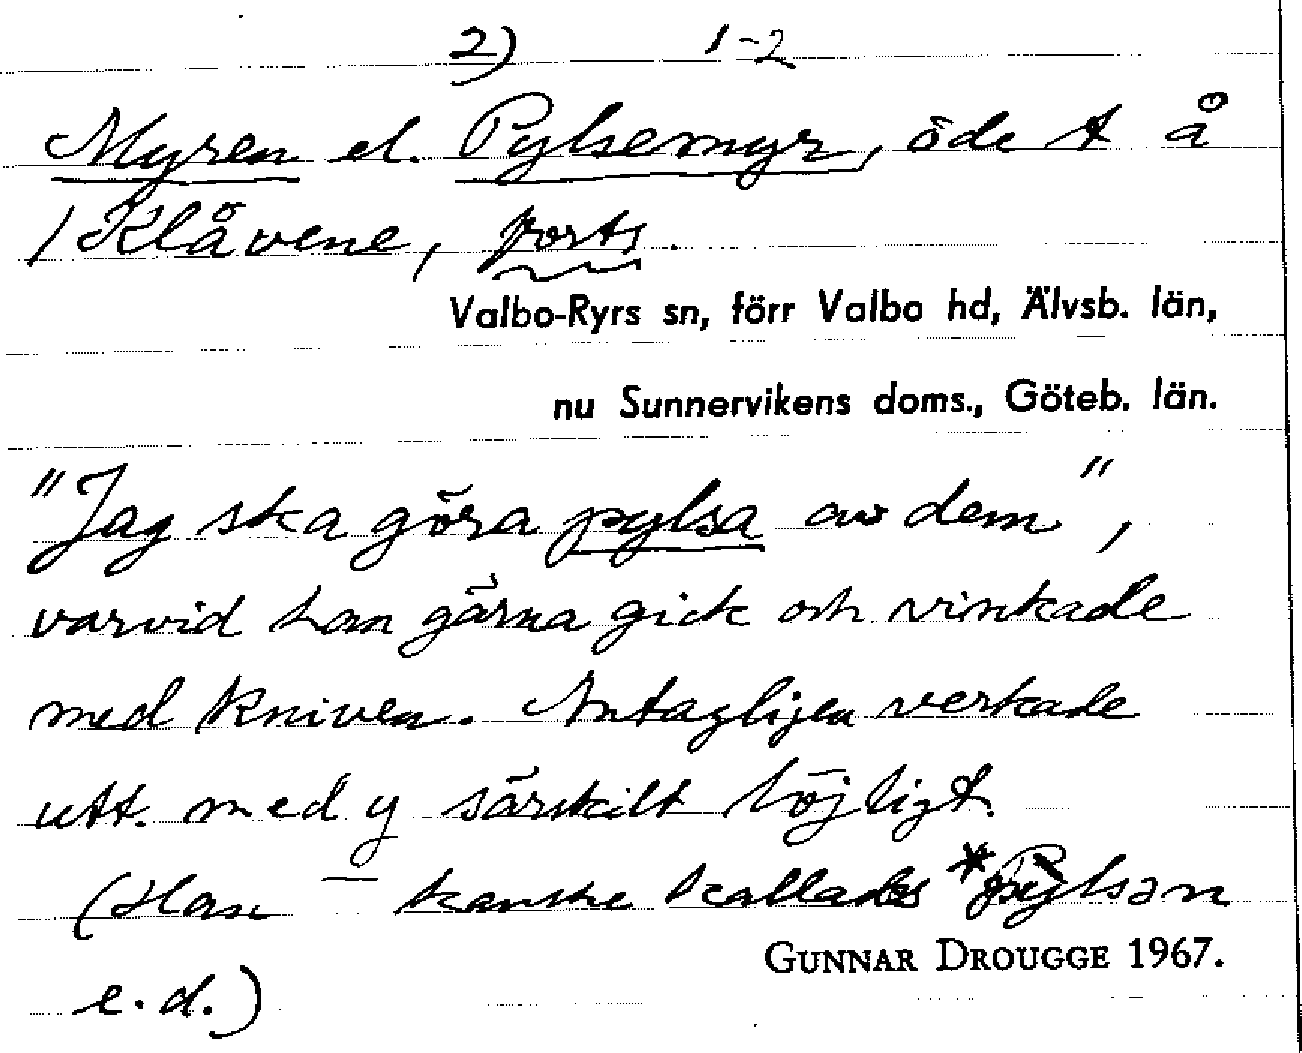 2) 1-2
Myren el. Pylsemyr, öde t å
/ Klåvene, forts.
Valbo-Ryrs sn, förr Valbo hd, Älvsb. län,
nu Sunnervikens doms., Göteb. län.
"Jag ska göra pylsa av dem",
varvid han gärna gick och vinkade
med kniven. Antagligen verkade
utt. med y särskilt löjligt.
(Han – kanske kallades *Pylsən
GUNNAR DROUGGE 1967.
e.d.)